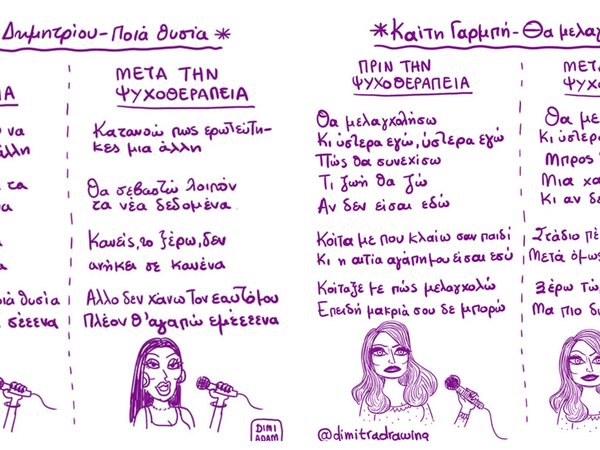 Δημητρίου - Ποιά θυσία *
ΙΑ
να
άλλη
τα
να
α
α
οιά θυσία
σέεενα
ΜΕΤΑ ΤΗΝ
ΨΥΧΟΘΕΡΑΠΕΙΑ
Κατανοώ πως ερωτεύτη-
κες μια άλλη
Θα σεβαστώ λοιπόν
τα νέα δεδομένα
Κανείς, το ξέρω, δεν
ανήκει σε κανένα
Αλλο δεν χάνω τον εαυτόμου
Πλέον θ'αγαπώ εμέεεενα
DIMI
ADAM
* Καίτη Γαρμπή - Θα μελαγ
ΠΡΙΝ ΤΗΝ
ΨΥΧΟΘΕΡΑΠΕΙΑ
Θα μελαγχολήσω
Κι ύστερα εγώ, ύστερα εγώ
Πώς θα συνεχίσω
Τι ζωή θα ζώ
Αν δεν είσαι εδώ
Κοίτα με που κλαίω σαν παιδί
Κι η αιτία αγάπημου είσαι εσύ
Κοίταξε με πώς μελαγχολώ
Επειδή μακριά σου δε μπορώ
@dimitradrawing
ΜΕΤ
ΨΥΧΟΘ
Θα με
Κι ύστερ
Μπρος
Μια χα
Κι αν δε
Στάδιο πέ
Μετά όμως
Ξέρω τώ
Μα πιο δι